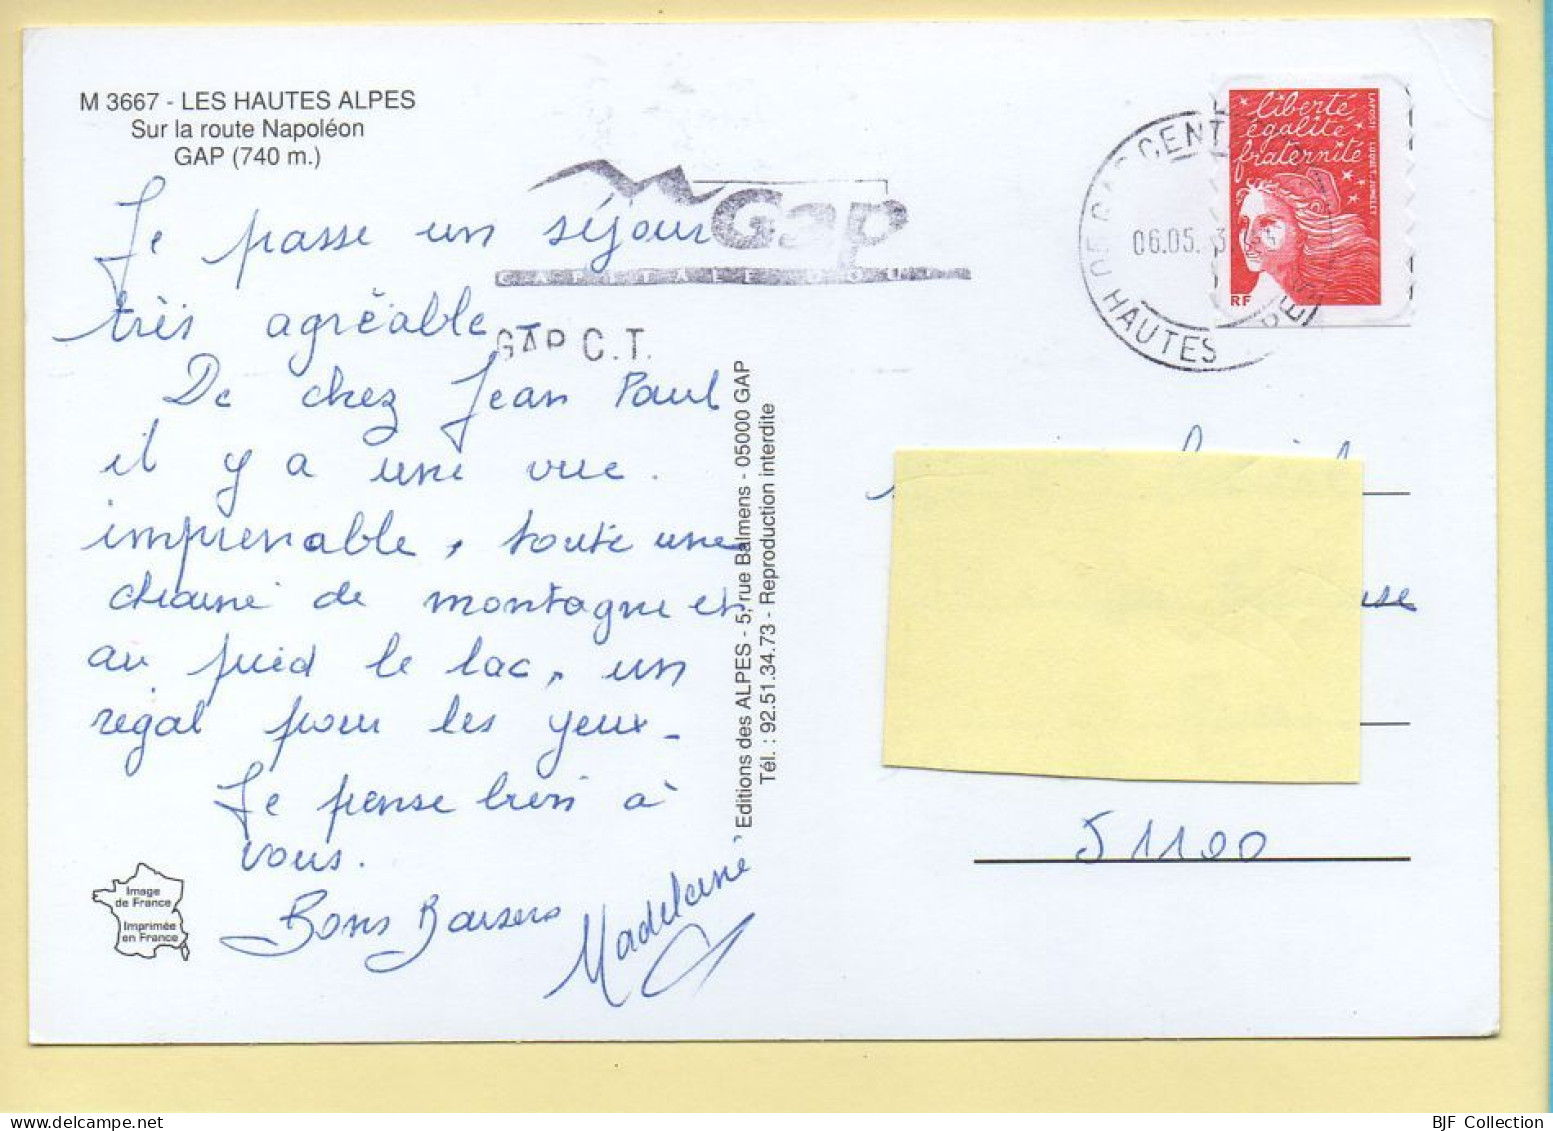 M 3667 - LES HAUTES ALPES
Sur la route Napoléon
GAP (740 m.)
Je passe un séjour
très agréable
De chez Jean Paul
il y a une vue
imprenable, toute une
chaine de montagne et
au pied le lac, un
régal pour les yeux -
Je pense bien à
vous.
Bons Baisers
Madeleine
Image
de France
Imprimée
en France
Gap
CAPITALE DOU
GAP C.T.
Editions des ALPES - 5, rue Balmens - 05000 GAP
Tél. : 92.51.34.73 - Reproduction interdite
05 GAP CENT
06.05.
HAUTES
liberté
égalité
fraternité
LAPOSTE LUQUET-JUMELET
RF
use
51100
BJF Collection